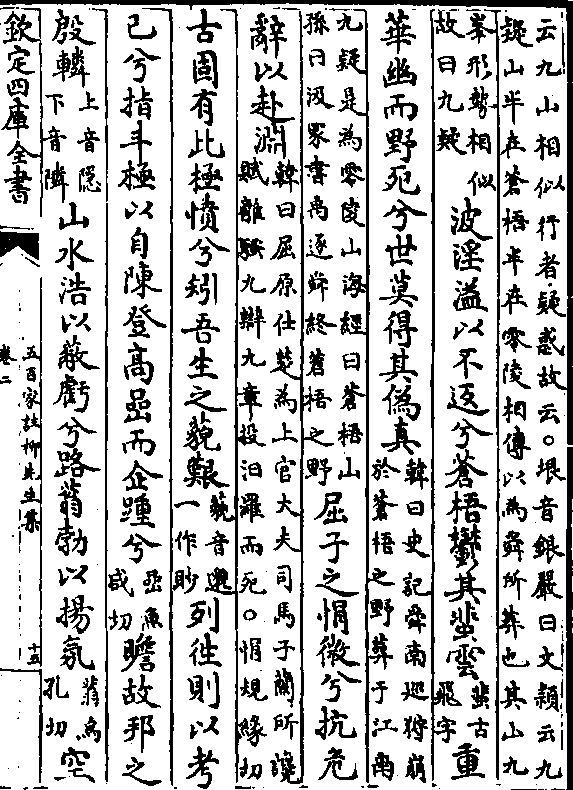 云九山相似行者疑惑故云○垠音銀嚴曰文頴云九
疑山半在蒼梧半在零陵相傳以為舜所葬也其山九
峯形勢相似
故曰九疑
波淫溢以不返兮蒼梧鬱其蜚雲
蜚古
飛字
重
華幽而野死兮世莫得其偽真
韓曰史記舜南廵狩崩
於蒼梧之野葬于江南
九疑是為零陵山海經曰蒼梧山
孫曰汲冢書禹逐舜終蒼梧之野
屈子之悁微兮抗危
辭以赴淵
韓曰屈原仕楚為上官大夫司馬子蘭所譖
賦離騷九辯九章投汨羅而死○悁規緣切
古固有此極憤兮矧吾生之藐艱
藐音邈
一作眇
列徃則以考
己兮指斗極以自陳登高嵒而企踵兮
嵒魚
咸切
瞻故邦之
殷轔
上音隱
下音隣
山水浩以蔽虧兮路蓊勃以揚氛
蓊烏
孔切
空
欽定四庫全書
五百家註柳先生集
卷二
十五